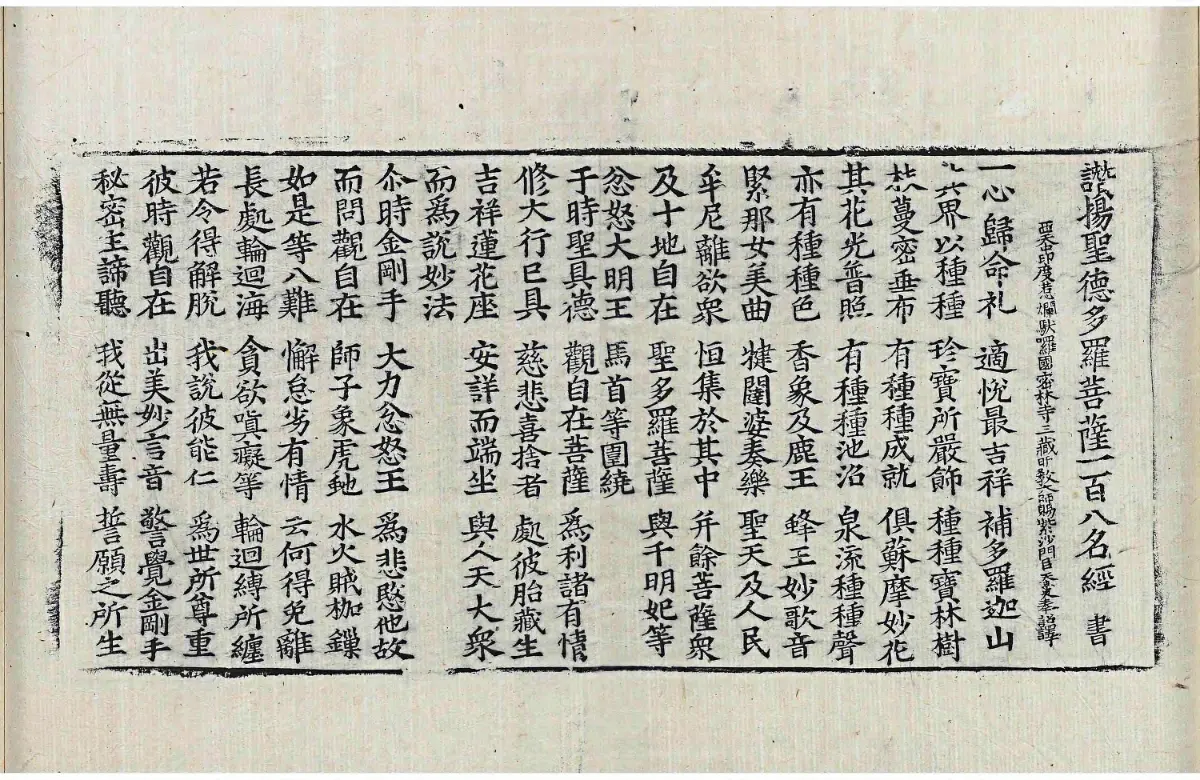 讚揚聖德多羅菩薩一百八名經 書
西天印度惹爛駄囉國密林寺三藏明教大師賜紫沙門臣天息災奉詔譯
一心歸命礼 適悅最吉祥 補多羅迦山
界以種種 珍寶所嚴飾 種種寶林樹
枝蔓密垂布 有種種成就 俱蘇摩妙花
其花光普照 有種種池沼 泉流種種聲
亦有種種色 香象及鹿王 蜂王妙歌音
緊那女美曲 犍闥婆奏樂 聖天及人民
牟尼離欲衆 恒集於其中 并餘菩薩衆
及十地自在 聖多羅菩薩 與千明妃等
忿怒大明王 馬首等圍繞
于時聖具德 觀自在菩薩 爲利諸有情
修大行已具 慈悲喜捨者 處彼胎藏生
吉祥蓮花座 安詳而端坐 與人天大衆
而爲說妙法
尒時金剛手 大力忿怒王 爲悲愍他故
而問觀自在 師子象虎虵 水火賊枷鏁
如是等八難 懈怠劣有情 云何得免離
長處輪迴海 貪欲嗔癡等 輪迴縛所纏
若令得解脫 我說彼能仁 爲世所尊重
彼時觀自在 出美妙言音 警覺金剛手
秘密主諦聽 我從無量壽 誓願之所生